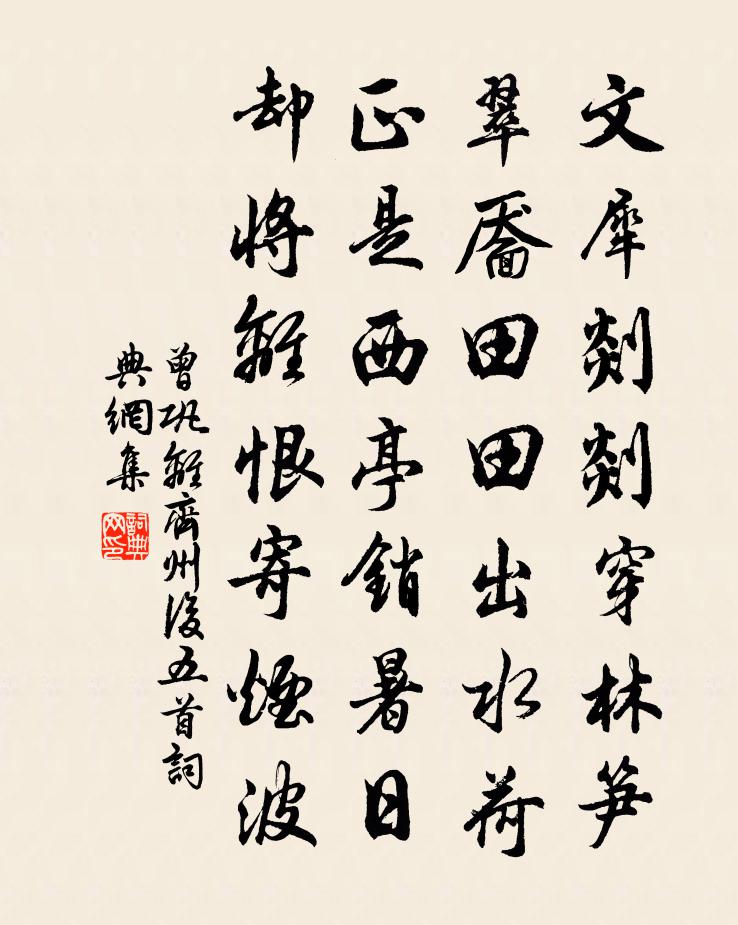 文犀剡剡穿林笋
翠靨田田出水荷
正是西亭銷暑日
却將離恨寄煙波
曾巩離齊州後五首詞
典網集
詞典
网印